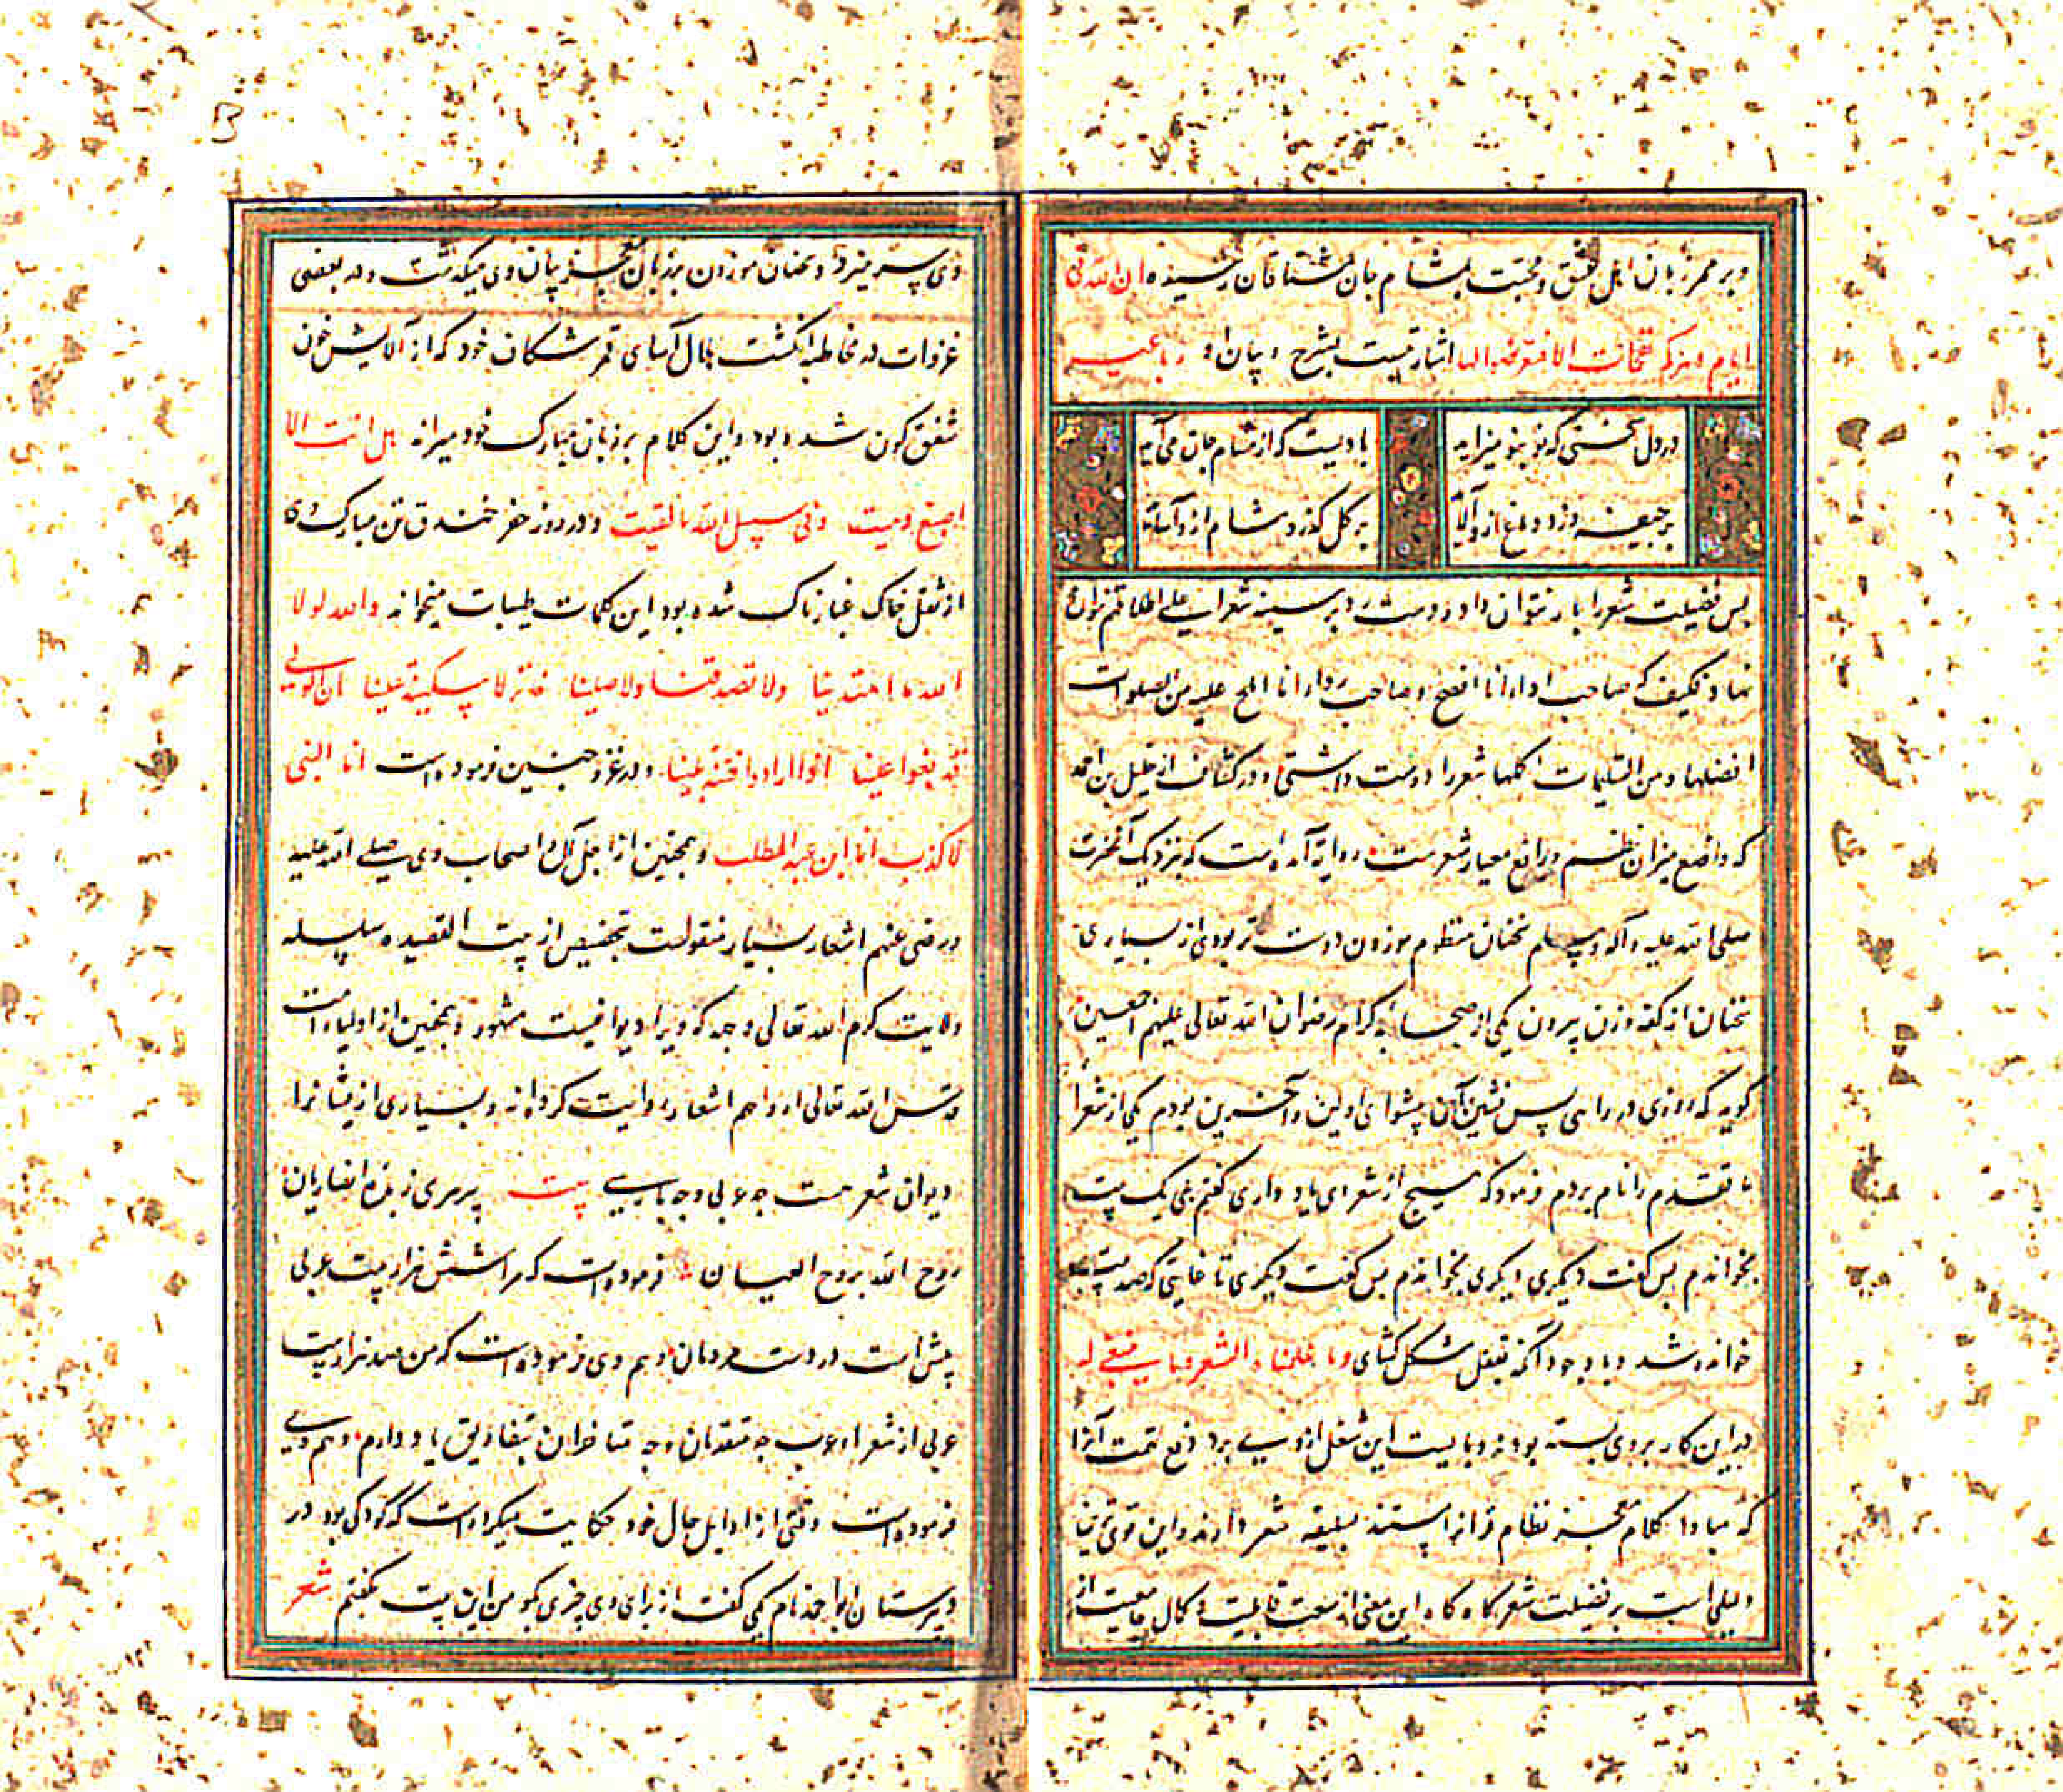 و بر ممر زبان اهل عشق و محبت بمشام جان مشتاقان رسیده ان لله فی
ایام دهرکم نفحات الا فتعرضوا لها اشارتیست بشرح و بیان او رباعیه
در دل سخنی که نو بنو میزاید
بادیست که از مشام جان می آید
بر جیفه وزد دماغ ازو آلاید
بر گل گذرد مشام ازو آساید
پس فضیلت شعر را باز نتوان داد و دست رد بر سینه شعرا علی اطلاقهم نتوان
نهاد فکیف که صاحب اداء انا افصح و صاحب رداء انا املح علیه من الصلوات
افضلها و من التسلیمات اکملها شعر را دوست داشتی و در کشاف از خلیل بن احمد
که واضع میزان نظم و رافع معیار شعرست روایة آمده است که نزدیک آنحضرت
صلی الله علیه و آله وسلم سخنان منظوم موزون دوست تر بودی از بسیاری
سخنان از کفه وزن بیرون یکی از صحابه کرام رضوان الله تعالی علیهم اجمعین
گوید که روزی در راهی پس نشین آن پیشوای اولین و آخرین بودم یکی از شعرا
ما تقدم را نام بردم فرمود که هیچ از شعر ای یاد داری گفتم بلی یک بیت
بخواندم پس گفت دیگری دیگری بخواندم پس گفت دیگری تا غایتی که صد بیت
خوانده شد و با وجود آنکه بقفل مشکل گشای و ما علمناه الشعر و ما ینبغی له
در این کار بر وی بسته بودند و بایست این شغل از وی برد دفع تهمت آنرا
که مبادا کلام معجز نظام قرانرا بسلیقه شعر دارند و این قوی ترین
دلیلی است بر فضیلت شعر گاه گاه این معنی از سعت قابلیت و کمال جامعیت از
وی سر میزد و سخنان موزون بر زبان معجز بیان وی میگذشت و در بعضی
غزوات در مخاطبه انگشت هلال آسای قمر شکاف خود که از آلایش خون
شفق گون شده بود و این کلام بر زبان مبارک خود میرانده هل انت الا
اصبع دمیت وفی سبیل الله ما لقیت و در روز حفر خندق تن مبارک وی
از ثقل خاک غبارناک شده بود این کلمات طیبات میخوانده والله لولا
الله ما اهتدینا ولا تصدقنا ولا صلینا فانزلا سکینة علینا ان الاولی
قد بغوا علینا اذا ارادوا فتنة ابینا و در غزو حنین فرموده است انا النبی
لا کذب انا ابن عبد المطلب و همچنین از اجل آل و اصحاب وی صلی الله علیه
و رضی عنهم اشعار بسیار منقولست بتخصیص از بیت القصیده سلسله
ولایت کرم الله تعالی وجهه که ویرا دیوانیست مشهور و همچنین از اولیاء امت
قدس الله تعالی ارواحهم اشعار روایت کرده اند و بسیاری ازیشانرا
دیوان شعر هست چه عربی و چه پارسی بیت پیر هری زبده انصاریان
روح الله بروح العیان فرموده است که مرا شش هزار بیت عربی
پیش است در دست مردمان و هم وی فرموده است که من صد هزار بیت
عربی از شعراء عرب چه متقدمان و چه متاخران بتفاریق یاد دارم و هم وی
فرموده است وقتی از اوایل حال خود حکایت میکرده است که کودکی بود در
دبیرستان ابو احمد نام یکی گفت از برای وی چیزی بگو من این بیت بگفتم شعر